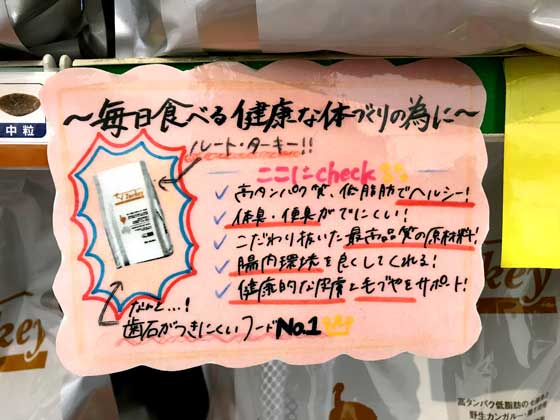 中粒
～毎日食べる健康な体づくりの為に～
ルート・ターキー!!
ここにcheck
高タンパク質、低脂肪でヘルシー!
体臭・便臭がでにくい!
こだわり抜いた最高品質の原材料!
腸内環境を良くしてくれる!
健康的な皮膚と毛づやをサポート!
なんと…!
歯石がつきにくいフードNo.1
key
高タンパク低脂肪の
野生カンガルー